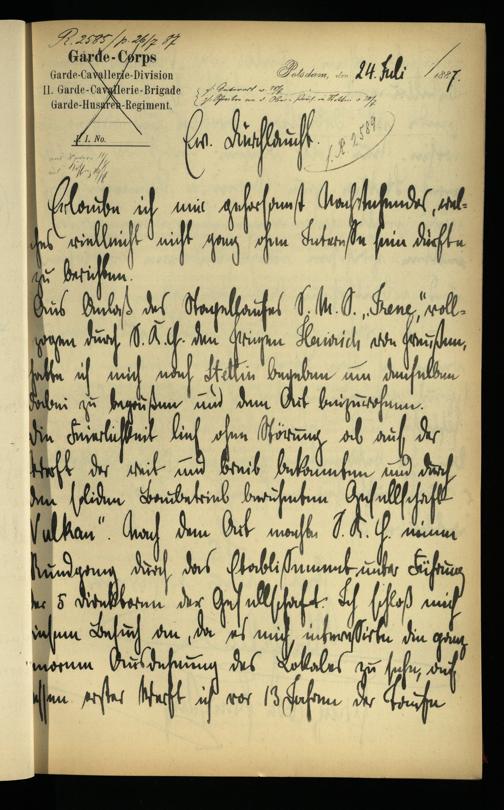 R. 2585/p. 26/7 87
Garde-Corps
Garde-Cavallerie-Division
II. Garde-Cavallerie-Brigade
Garde-Husaren-Regiment.
J. I. No.
Potsdam, den 24. Juli /1887.
Ew. Durchlaucht.
f. R 2589
Erlaube ich mir gehorsamst Nachstehendes, wel-
ches vielleicht nicht ganz ohne Interesse sein dürfte
zu berichten.
Aus Anlaß des Stapellaufes S. M. S. „Irene“, voll-
zogen durch S. K. H. den Prinzen Heinrich von Preußen,
hatte ich mich nach Stettin begeben um denselben
dabei zu begrüßen und dem Akt beizuwohnen.
Die Feierlichkeit lief ohne Störung ab auf der
Werft der weit und breit bekannten und durch
den soliden Baubetrieb berühmten Gesellschaft
Vulkan“. Nach dem Akt machte S. K. H. einen
Rundgang durch das Etablissement unter Führung
der 5 Direktoren der Gesellschaft. Ich schloß mich
diesem Besuch an, da es mich interessirte die ganz
enorme Ausdehnung des Lokales zu sehen, auf
dessen erster Werft ich vor 13 Jahren der Taufe